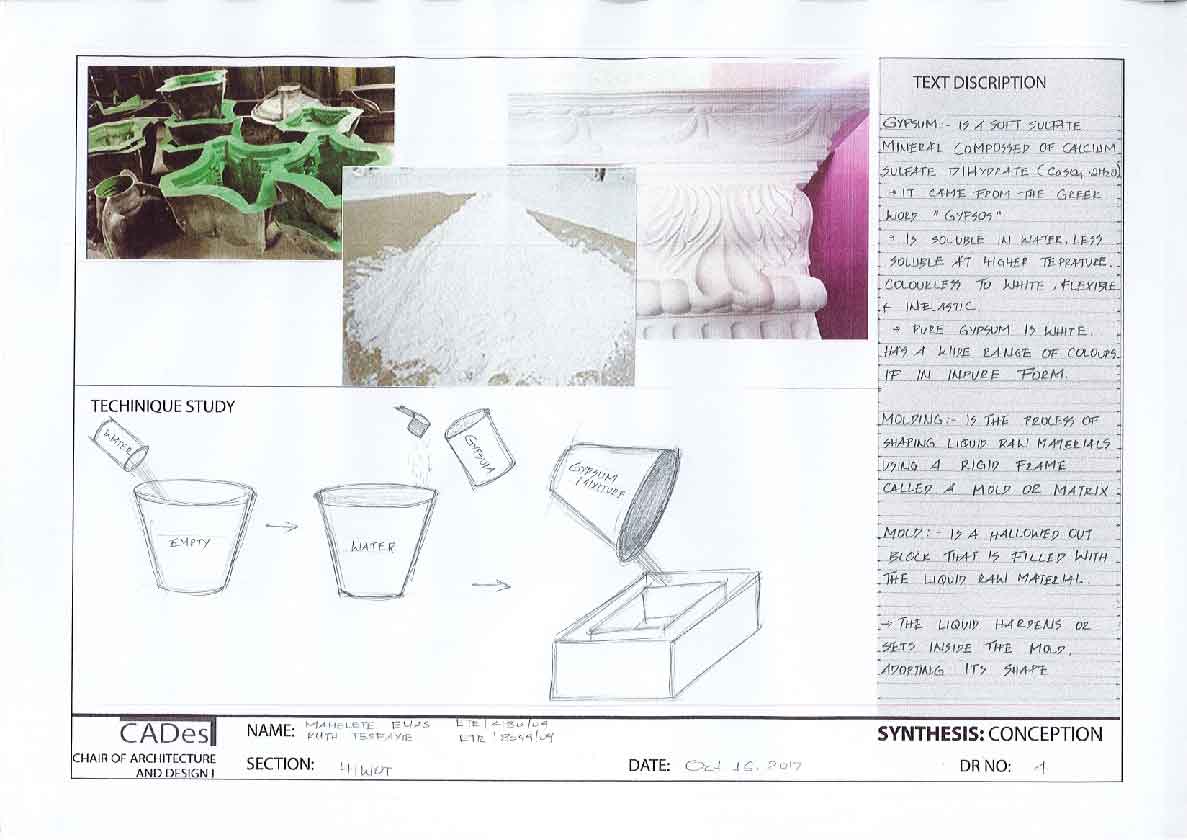 TEXT DISCRIPTION
GYPSUM:- IS A SOFT SULFATE
MINERAL COMPOSSED OF CALCIUM
SULFATE DIHYDRATE (CaSO4 2H2O)
→ IT CAME FROM THE GREEK
WORD "GYPSOS"
→ IS SOLUBLE IN WATER, LESS
SOLUBLE AT HIGHER TEPRATURE.
COLOURLESS TO WHITE, FLEXIBLE
& INELASTIC
→ PURE GYPSUM IS WHITE.
HAS A WIDE RANGE OF COLOURS
IF IN INPURE FORM.
MOLDING:- IS THE PROCESS OF
SHAPING LIQUID RAW MATERIALS
USING A RIGID FRAME
CALLED A MOLD OR MATRIX
MOLD:- IS A HALLOWED OUT
BLOCK THAT IS FILLED WITH
THE LIQUID RAW MATERIAL.
→ THE LIQUID HARDENS OR
SETS INSIDE THE MOLD,
ADOPTING ITS SHAPE
TECHINIQUE STUDY
WATER
EMPTY
GYPSUM
WATER
GYPSUM
MIXTURE
CADes
CHAIR OF ARCHITECTURE
AND DESIGN I
NAME: MAHELETE
RUTH TESFAYE
SECTION:
DATE: Oct 16, 2017
SYNTHESIS: CONCEPTION
DR NO: 1